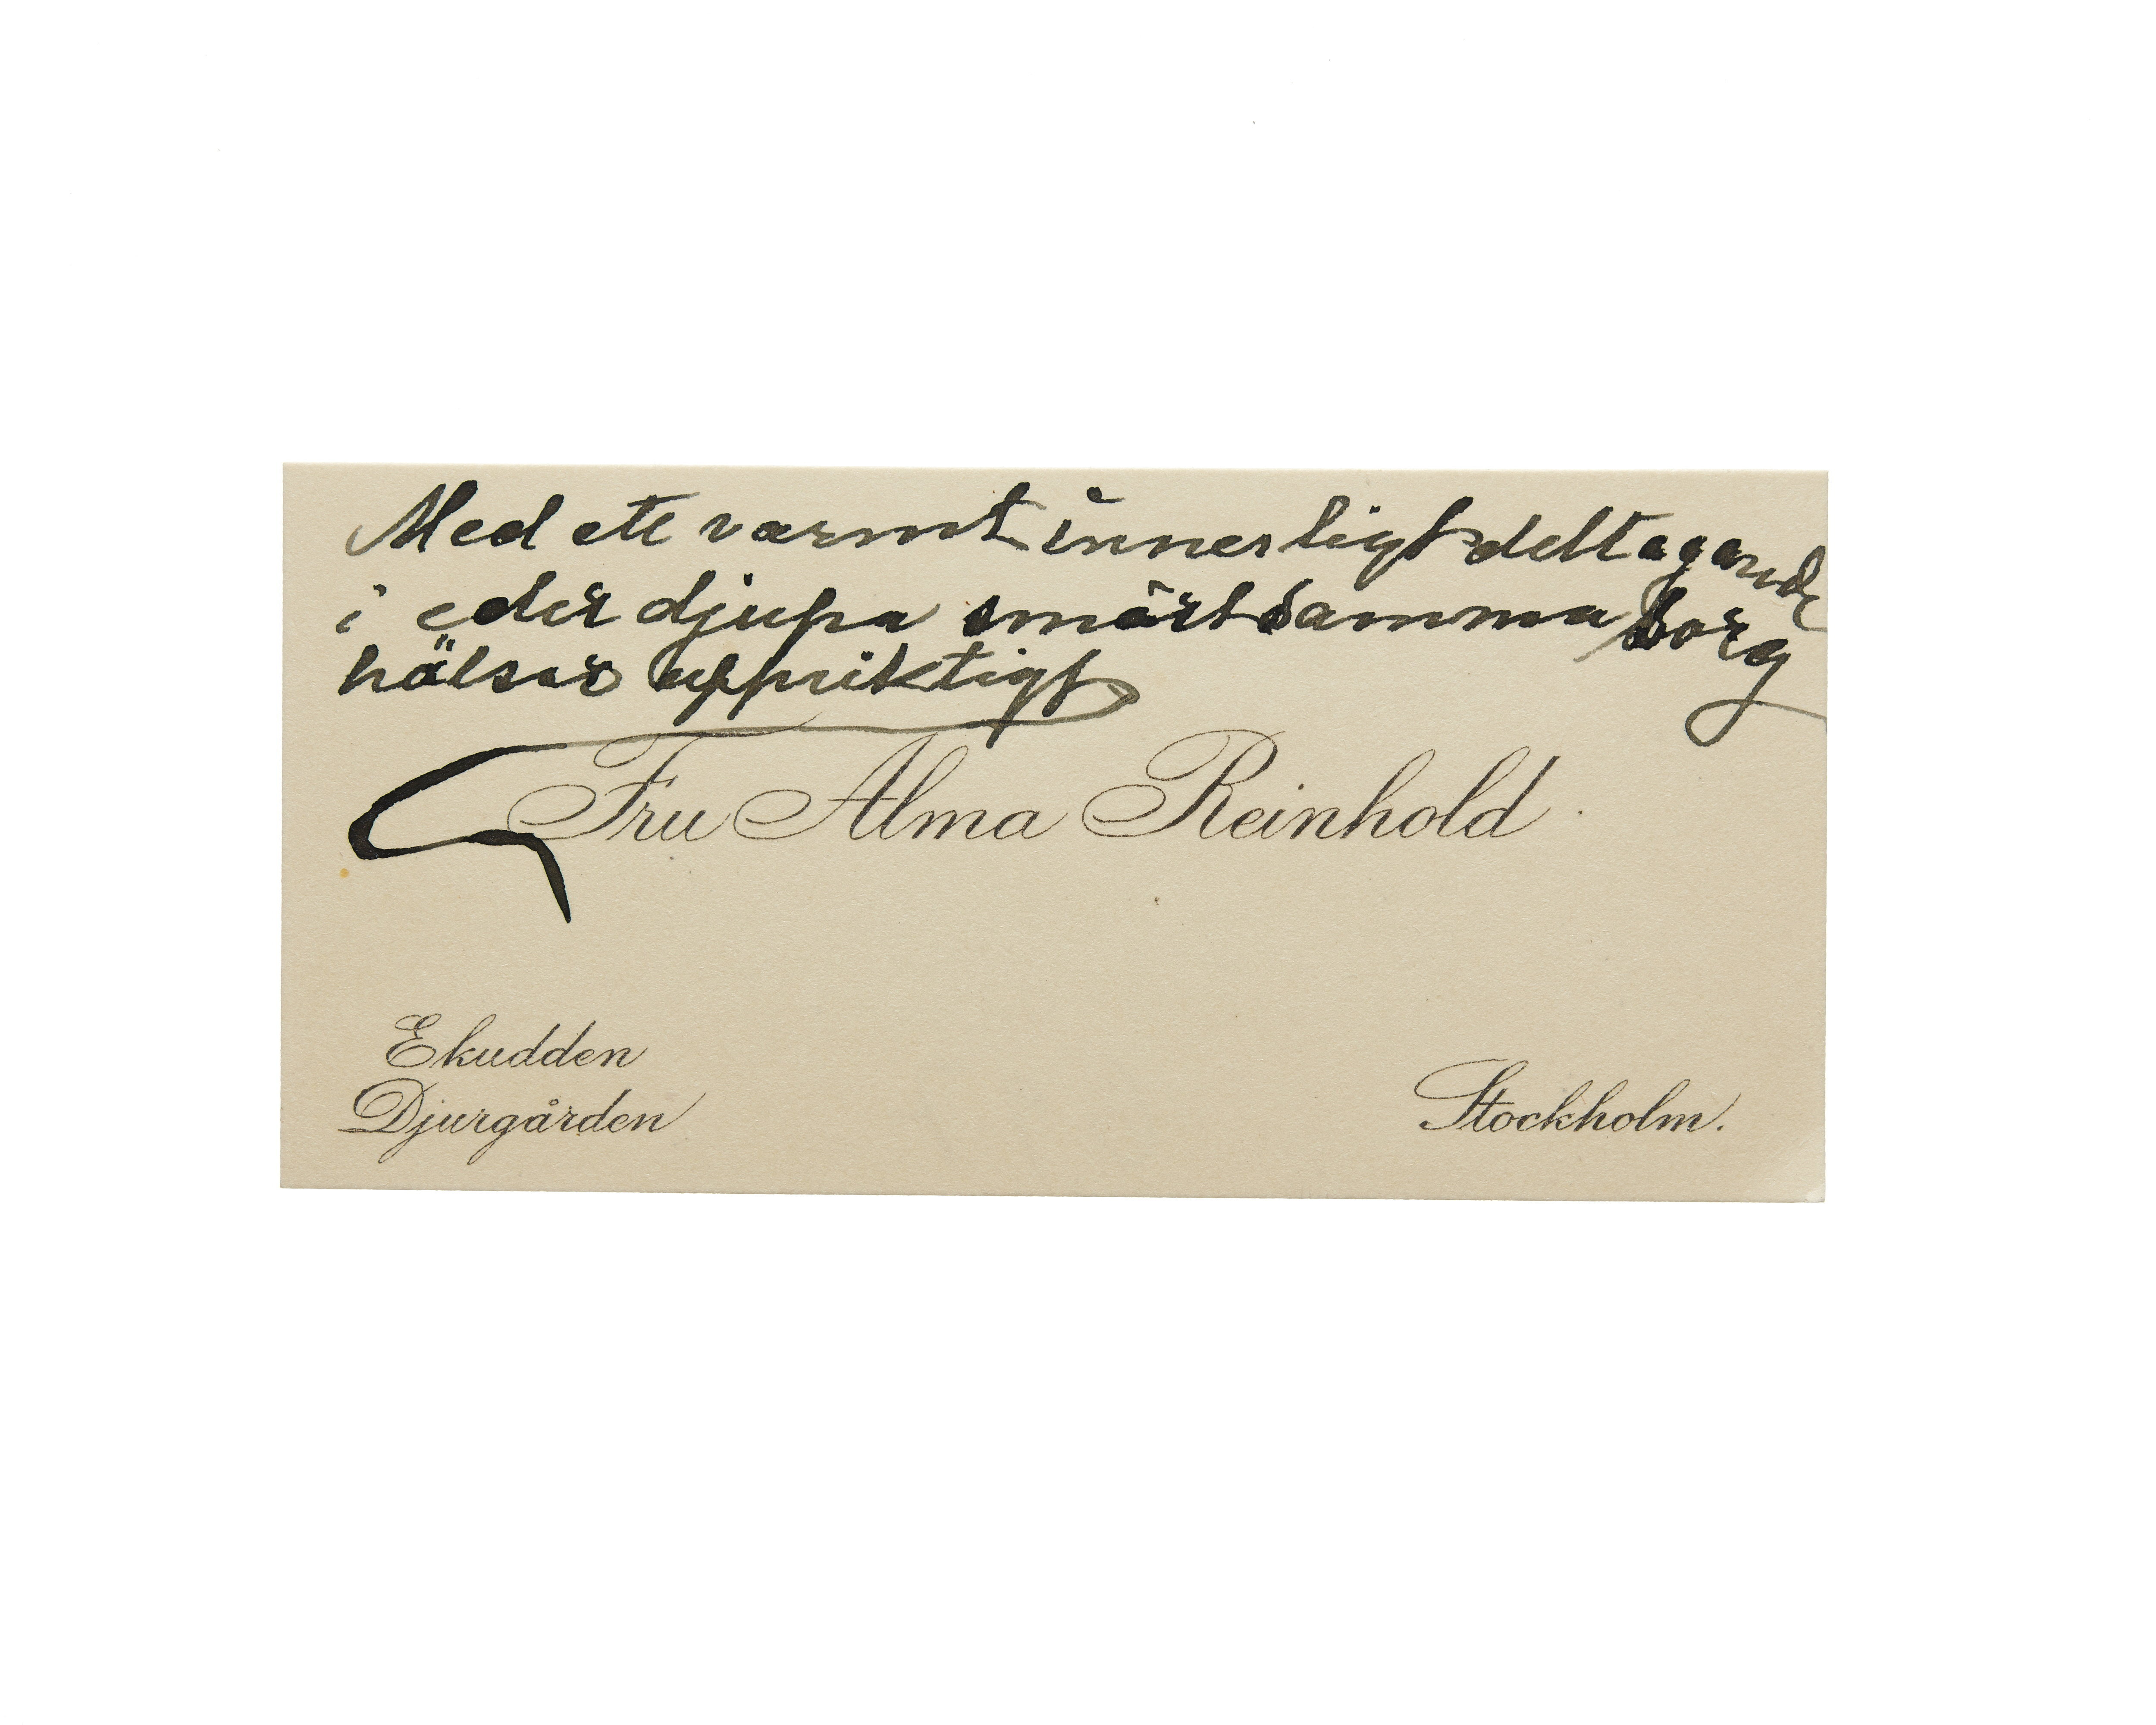 Med ett varmt innerligt deltagande
i eder djupa smärtsamma sorg
hälsar uppriktigt
Fru Alma Reinhold
Ekudden
Djurgården
Stockholm.